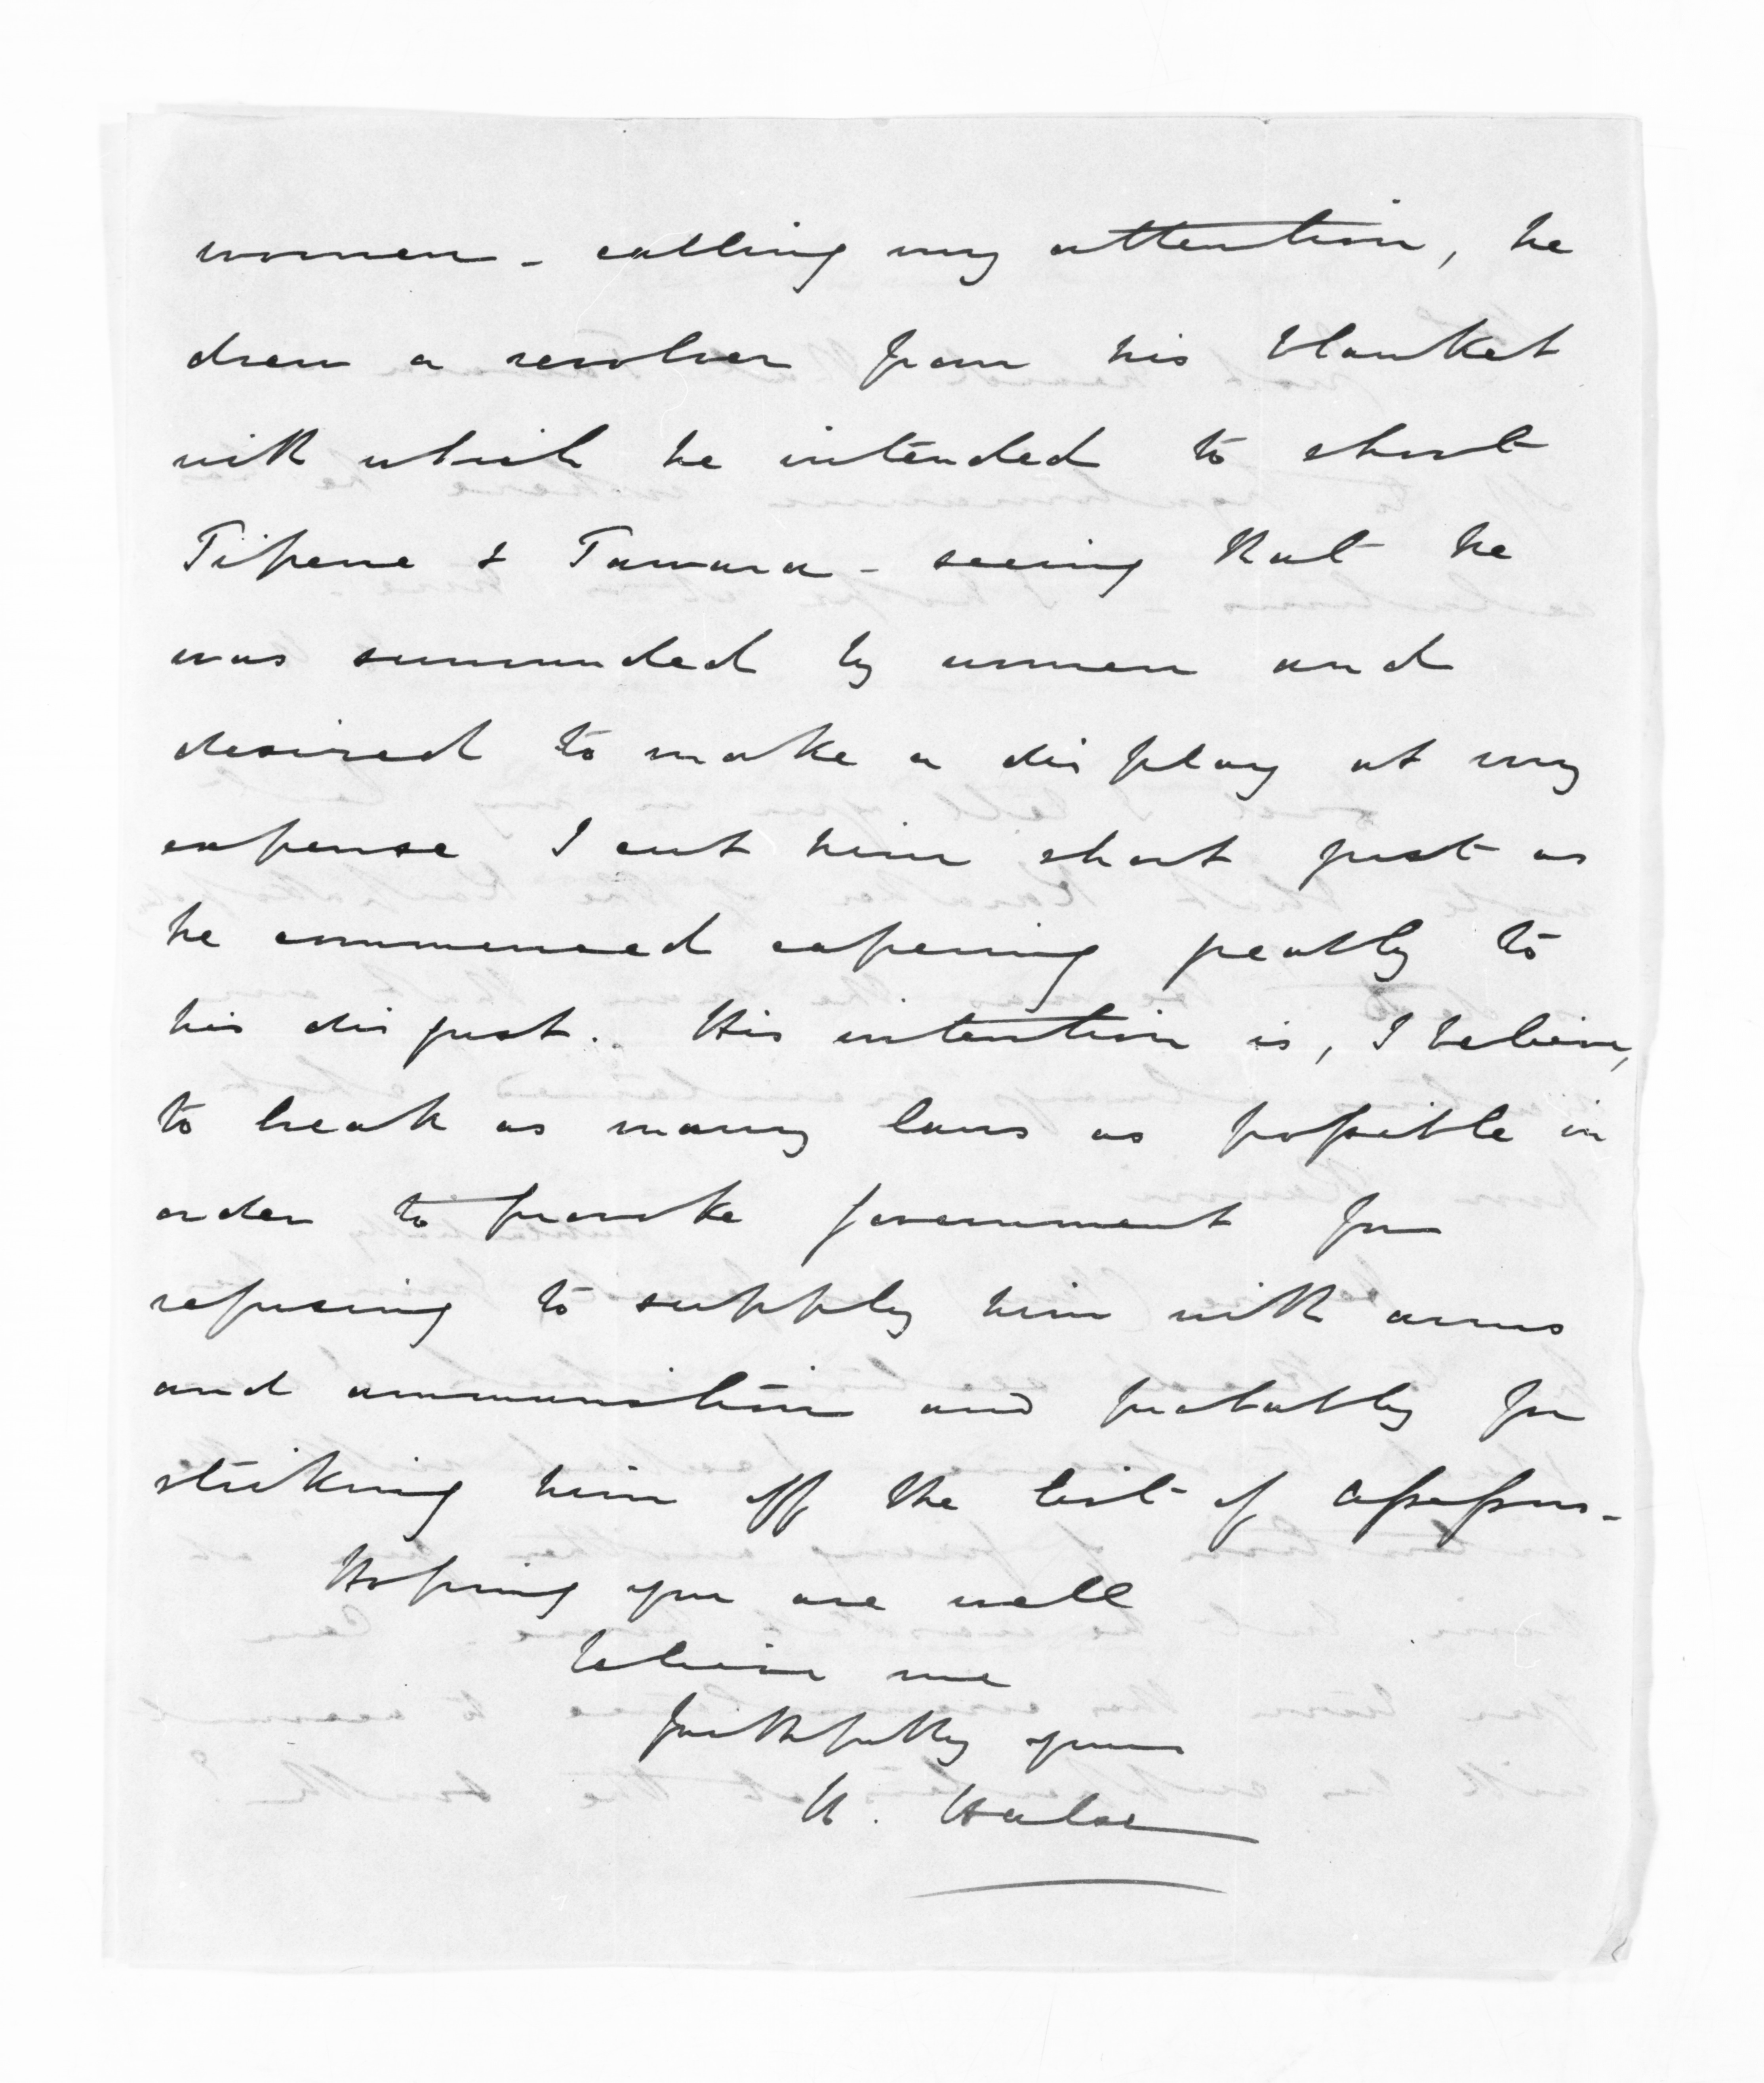 women - calling my attention, he
drew a revolver from his blanket
with which he intended to shoot
Tipene & Tamara - seeing that he
was surrounded by women and
desired to make a display at my
expense I cut him short just as
he commenced capering greatly to
his disgust. His intention is, I believe,
to break as many laws as possible in
order to provoke Government for
refusing to supply him with arms
and ammunition and probably for
striking him off the list of Assessors -
Hoping you are well
believe me
faithfully yours
H. Halse